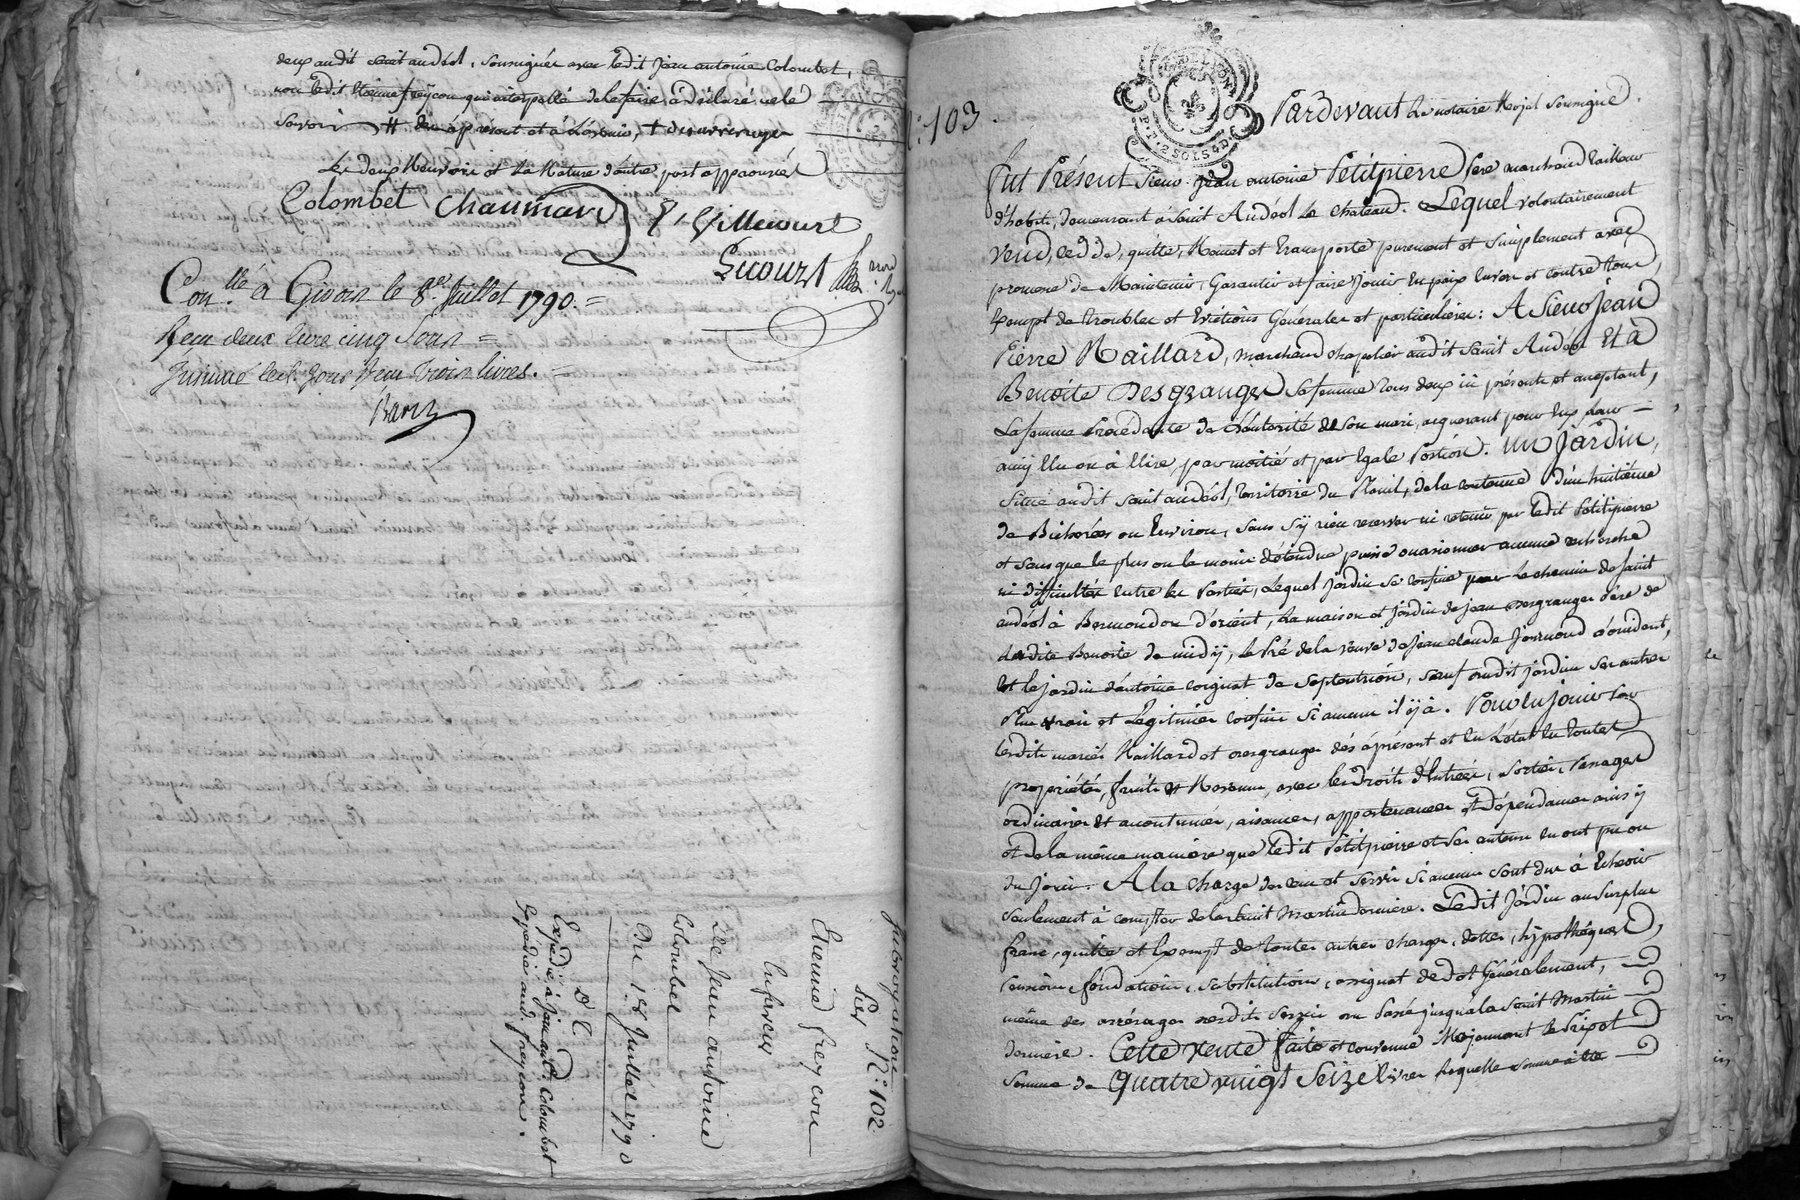 deux audit saint andéol, soussignés avec ledit jean antoine Colombet,
non ledit Etienne freyçon qui interpellé de le faire, a déclaré ne le
savoir # dès àprésent et à l'avenir,
Les deux Renvois et la Rature d'autre part approuvés
Colombet chaumard Villecourt
Con.llé à Givors le 8.e Juillet 1790. =
Reçu deux livres cinq sous =
trois livres. =
Subrogation
Pier N.° 102.
Etienne freyçon
En faveur
De Jean antoine
Colombet
Du 1.er Juillet 1790
D. C.
Expédié à jean ant.e Colombet
Expédié aud. freyçon.
N.° 103.
2 SOLS 4 D.
Pardevant Le notaire Royal soussigné
fut Présent sieur jean antoine Petitpierre Père marchand tailleur
d'habits, demeurant à Saint Andéol le chateau. Lequel volontairement
vend, cedde, quitte, Remet et transporte purement et simplement avec
promesse de Maintenir, Garantir et faire Jouir En paix Envers et contre tous,
Exempt de troubles et Evictions Générales et particulières: A Sieur Jean
Pierre Raillard, marchand chapelier audit Saint Andéol Et à
Benoite Desgranges sa femme tous deux ici présents et acceptant,
La femme procédante de l'autorité de son mari, acquerant pour Eux
amy Elu ou à Elire, par moitié et par Egale Portion. un Jardin,
situé audit saint andéol, territoire du Plouil, de la contenue d'un huitième
de Bicherées ou Environ, sans s'y rien reserver ni retenir par ledit Petitpierre
et sans que le plus ou le moins d'étendue puisse occasionner aucune recherche
ni difficultés Entre les Parties, Lequel Jardin se confine par le chemin de saint
andéol à Bermondon d'orient, la maison et jardin de jean Desgranges Père de
ladite Benoite de midÿ, le Pré de la veuve de Jean claude Journoud d'occident,
Et le jardin d'antoine coignet de Septentrion, sauf audit jardin ses autres
Plus vrais et Légitimes confins si aucuns il ÿ a. Pour en jouir Par
lesdits mariés Raillard et Desgranges dès àprésent et En l'état En toutes
propriétés, fruits et Revenus, avec les Droits d'Entrées, sorties, Passages
ordinaires et accoutumés, aisances, appartenances et dépendances ainsi ÿ
et de la même manière que ledit Petitpierre et ses auteurs en ont pu ou
du jouir. A la charge des cens et servis si aucuns sont dus à Echoir
seulement à compter de la Saint Martin dernière. Ledit Jardin au surplus
franc, quitte et Exempt de toutes autres charges, dettes, hypothéques,
Pensions, fondations, substitutions, assignat de dot Généralement,
même des arrérages desdits Servis du Passé jusqu'à la Saint Martin
dernière. Cette vente faite et convenue Moyennant le Prix et
somme de quatre vingt Seize livres Laquelle somme